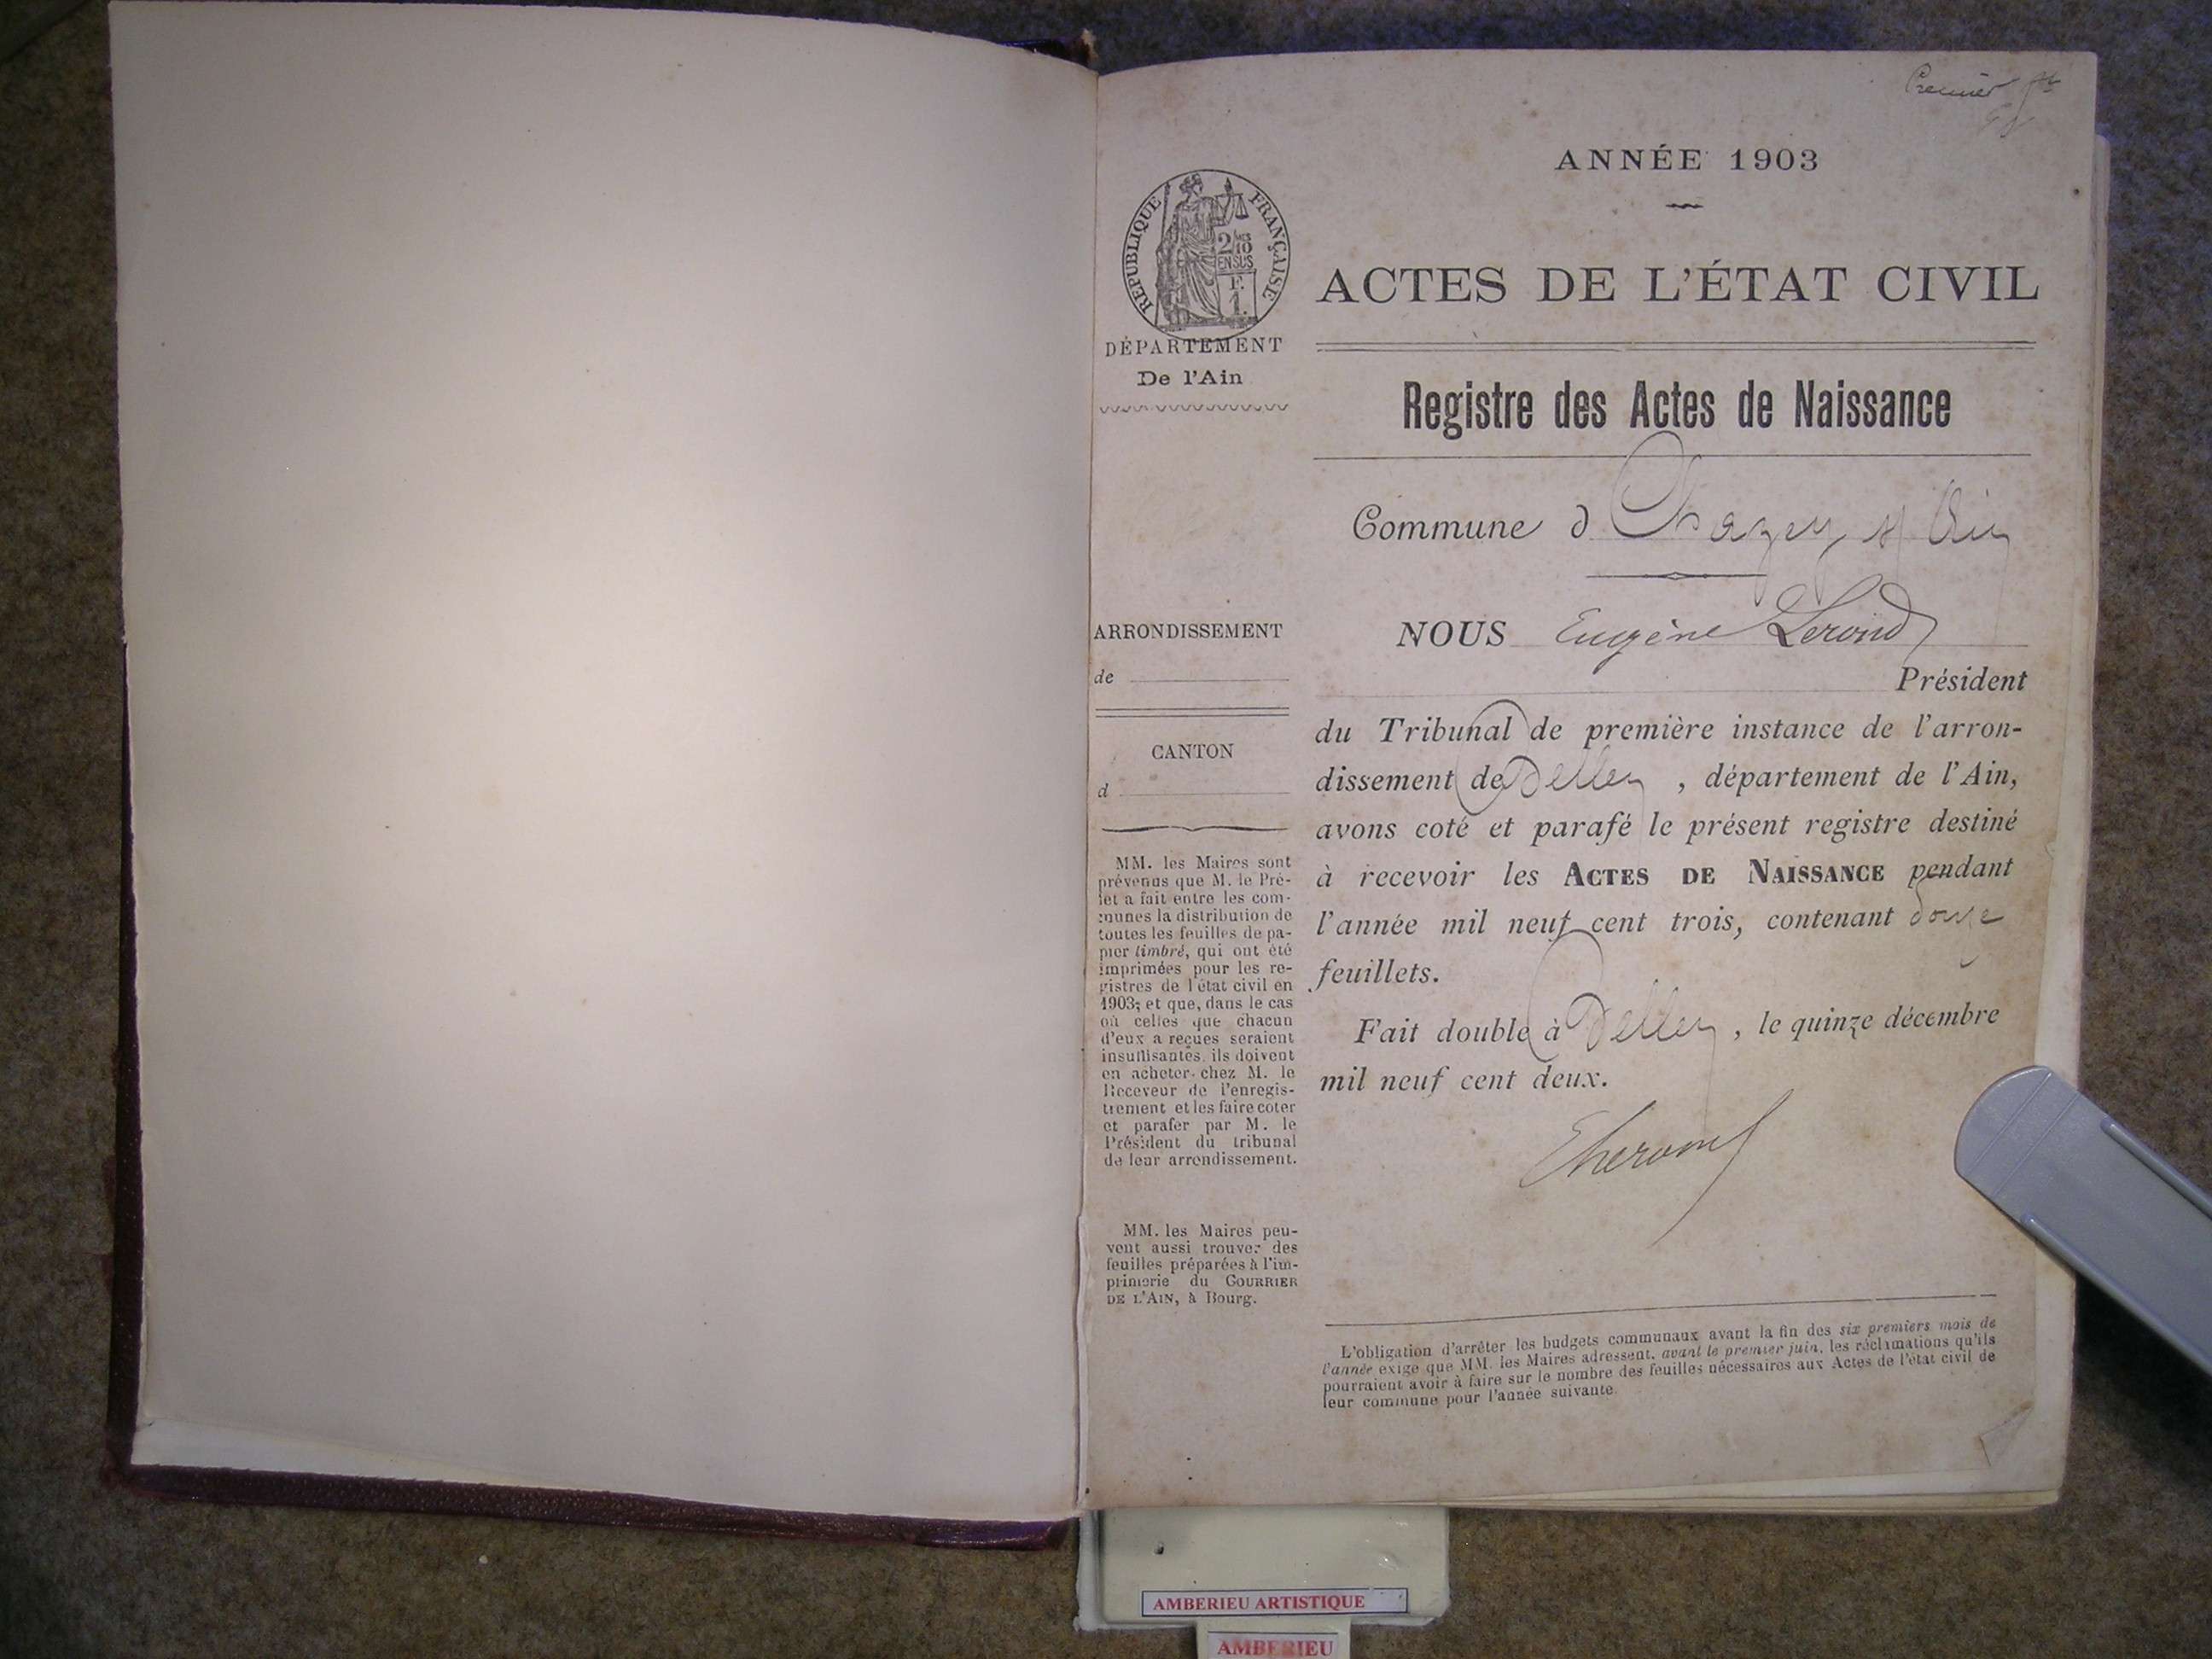 Premier
ANNÉE 1903
RÉPUBLIQUE FRANÇAISE
2/10 EN SUS
F. 1.
DÉPARTEMENT
De l'Ain
ACTES DE L'ÉTAT CIVIL
Registre des Actes de Naissance
Commune d Chazey s/ Ain
NOUS Eugène
Président
du Tribunal de première instance de l'arron-
dissement de Belley, département de l'Ain,
avons coté et parafé le présent registre destiné
à recevoir les ACTES DE NAISSANCE pendant
l'année mil neuf cent trois, contenant douze
feuillets.
Fait double à Belley, le quinze décembre
mil neuf cent deux.
ARRONDISSEMENT
de
CANTON
d
MM. les Maires sont
prévenus que M. le Pré-
fet a fait entre les com-
munes la distribution de
toutes les feuilles de pa-
pier timbré, qui ont été
imprimées pour les re-
gistres de l'état civil en
1903; et que, dans le cas
où celles que chacun
d'eux a reçues seraient
insuffisantes, ils doivent
en acheter chez M. le
Receveur de l'enregis-
trement et les faire coter
et parafer par M. le
Président du tribunal
de leur arrondissement.
MM. les Maires peu-
vent aussi trouver des
feuilles préparées à l'im-
primerie du COURRIER
DE L'AIN, à Bourg.
L'obligation d'arrêter les budgets communaux avant la fin des six premiers mois de
l'année exige que MM. les Maires adressent, avant le premier juin, les réclamations qu'ils
pourraient avoir à faire sur le nombre des feuilles nécessaires aux Actes de l'état civil de
leur commune pour l'année suivante.
AMBERIEU ARTISTIQUE
AMBERIEU